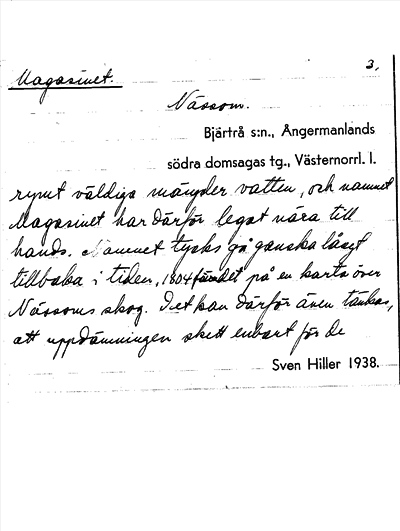 3.
Magasinet.
Nässom.
Bjärtrå s:n., Ångermanlands
södra domsagas tg., Västernorrl. l.
rymt väldiga mängder vatten, och namnet
Magasinet har därför legat nära till
hands. Namnet tycks gå ganska långt
tillbaka i tiden, 1804 fanns det på en karta över
Nässoms skog. Det kan därför även tänkas,
att uppdämningen skett enbart för de
Sven Hiller 1938.